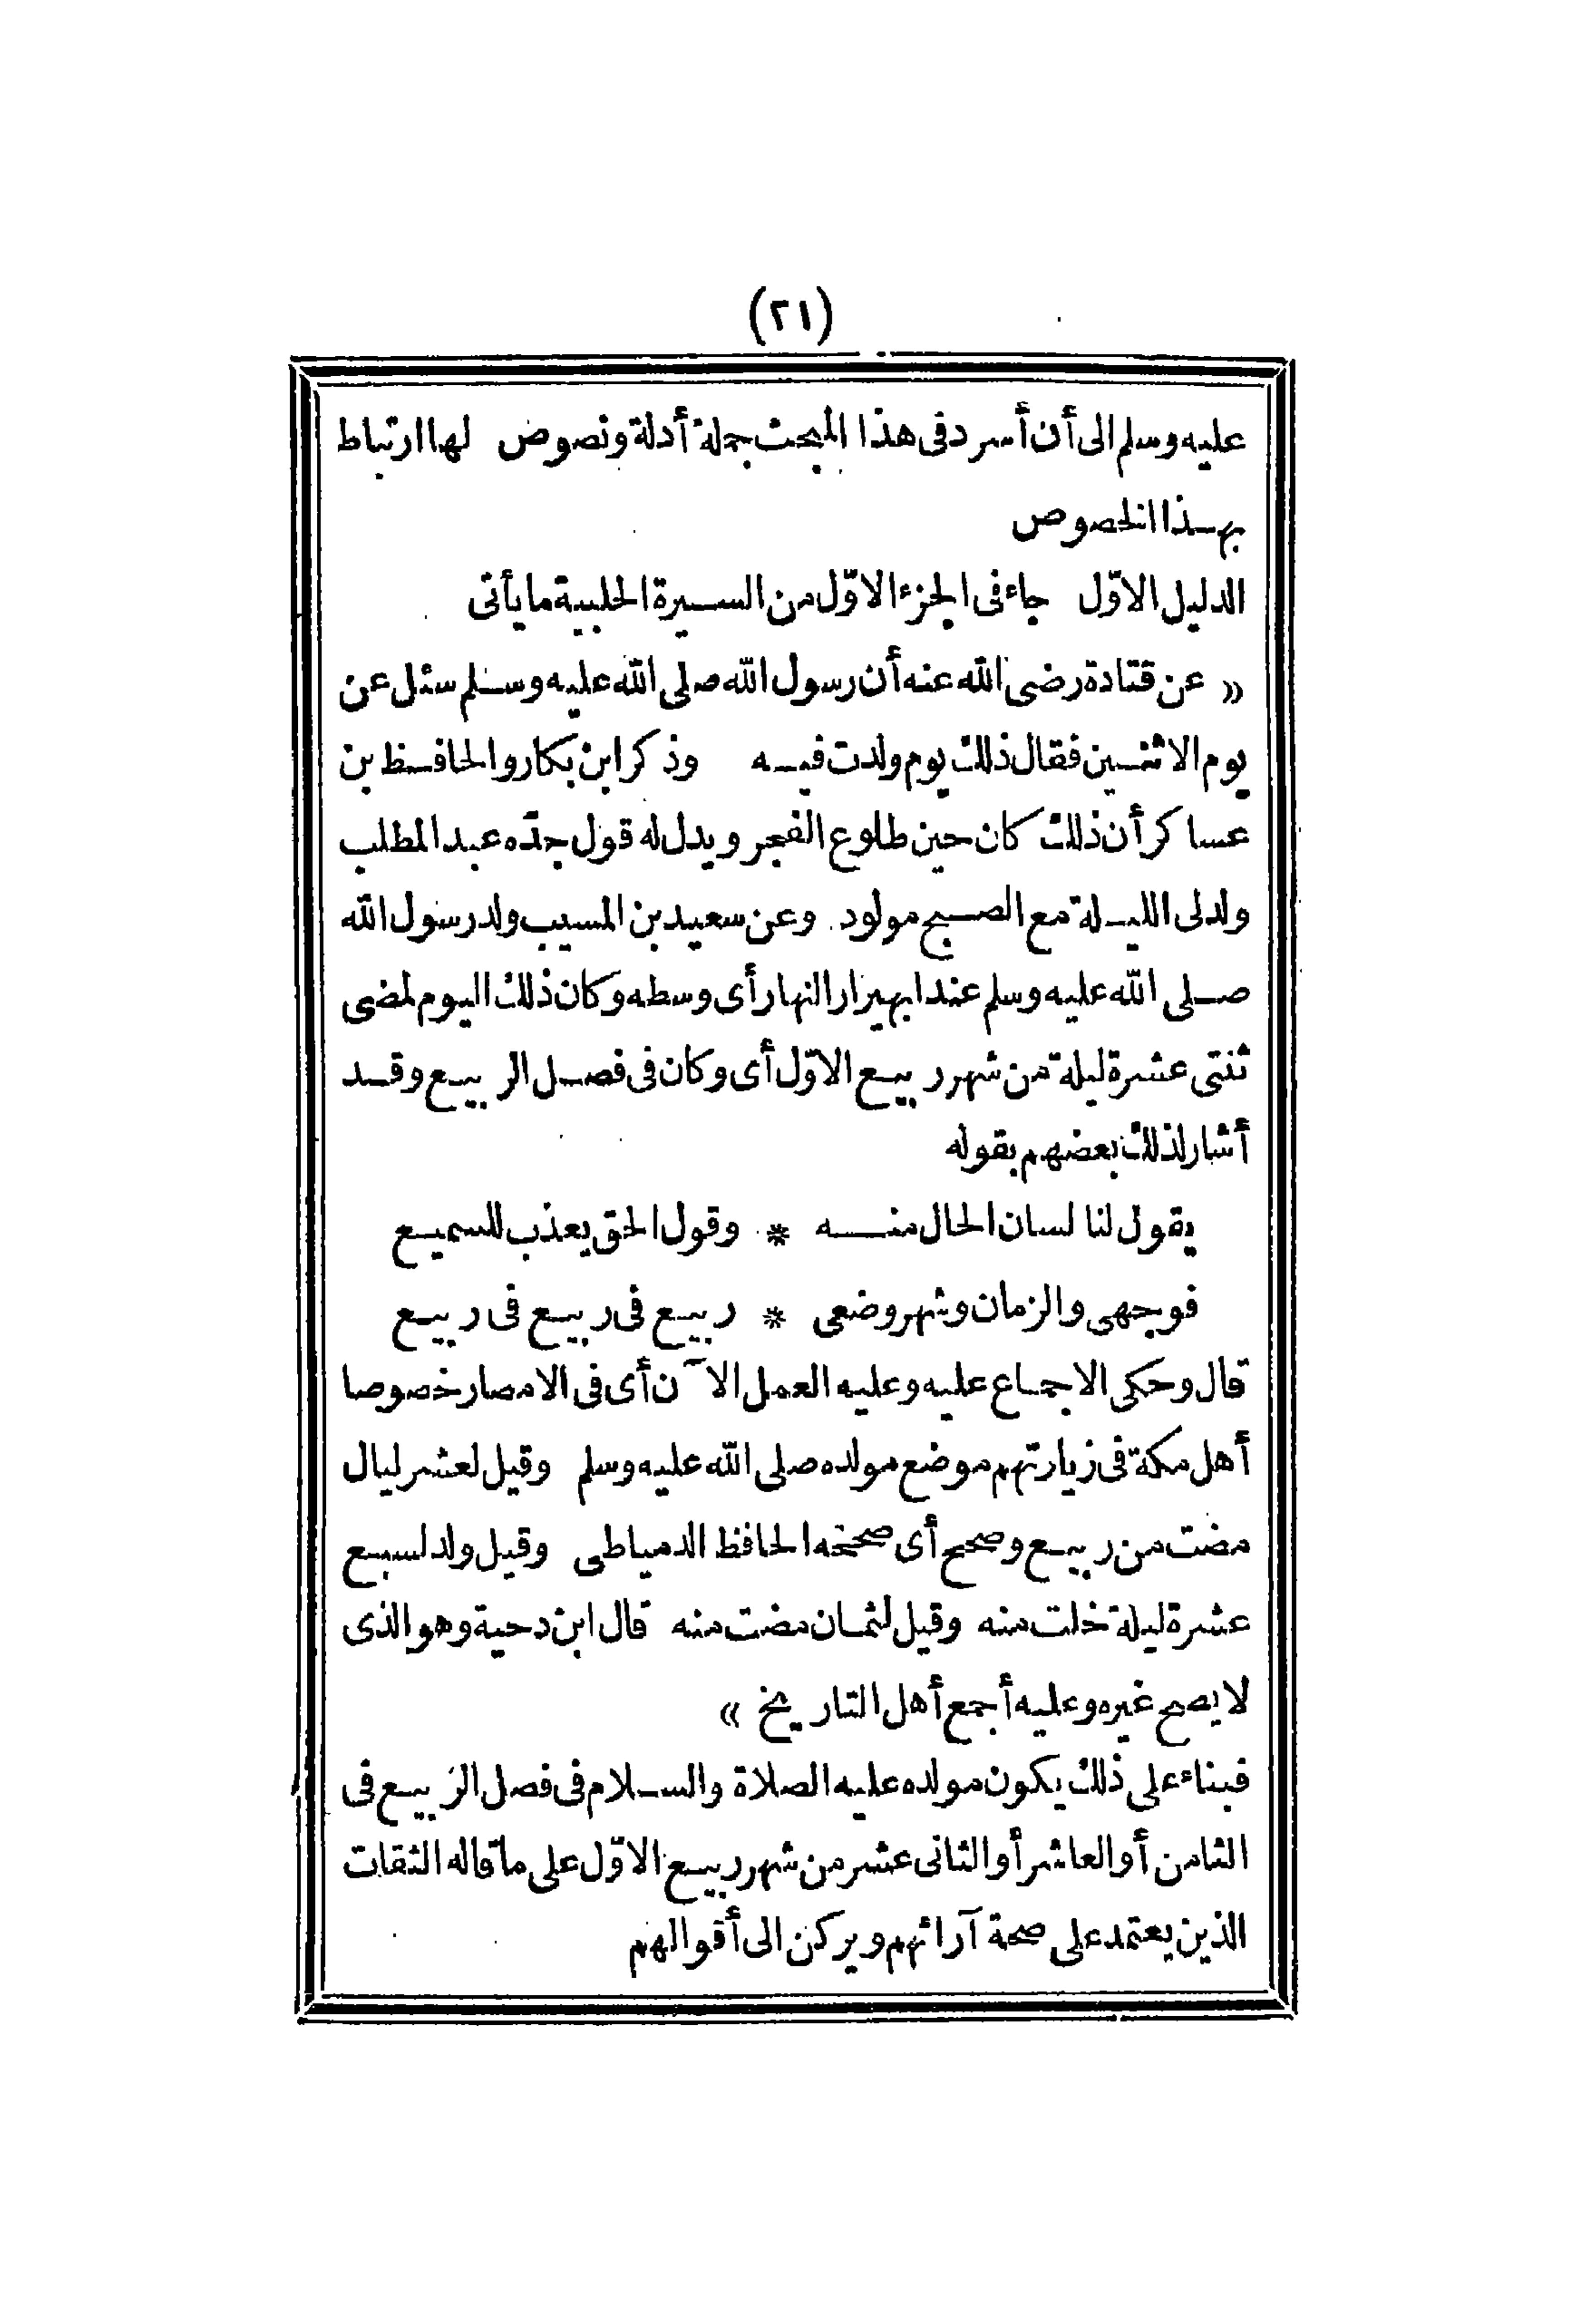 (٢١)
عليه وسلم الى أن أسرد فى هذا المبحث جملة أدلة ونصوص لها ارتباط
بهـذا الخصوص
الدليل الاوّل جاء فى الجزء الاوّل من السـيرة الحلبية ما يأتى
« عن قتادة رضى الله عنه أن رسول الله صلى الله عليه وسـلم سئل عن
يوم الاثنـين فقال ذلك يوم ولدت فيـه وذكر ابن بكار والحافـظ بن
عساكر أن ذلك كان حين طلوع الفجر ويدل له قول جدّه عبد المطلب
ولد لى الليـلة مع الصـبح مولود وعن سعيد بن المسيب ولد رسول الله
صـلى الله عليه وسلم عند ابهيرار النهار أى وسطه وكان ذلك اليوم لمضى
ثنتى عشرة ليلة من شهر ربيـع الاوّل أى وكان فى فصـل الربيـع وقـد
أشار لذلك بعضهم بقوله
يقول لنا لسان الحال منـه * وقول الحق يعذب للسميـع
فوجهى والزمان وشهر وضعى * ربيـع فى ربيـع فى ربيـع
قال وحكى الاجـاع عليه وعليه العمل الآن أى فى الامصار خصوصا
أهل مكة فى زيارتهم موضع مولده صلى الله عليه وسلم وقيل لعشر ليال
مضت من ربيـع وصحح أى صححه الحافظ الدمياطى وقيل ولد لسبـع
عشرة ليلة خلت منه وقيل لثمـان مضت منه قال ابن دحية وهو الذى
لا يصح غيره وعليه أجمع أهل التاريخ »
فبناء على ذلك يكون مولده عليه الصلاة والسـلام فى فصل الربيـع فى
الثامن أو العاشر أو الثانى عشر من شهر ربيـع الاوّل على ما قاله الثقات
الذين يعتمد على صحة آرائهم ويركن الى أقوالهم